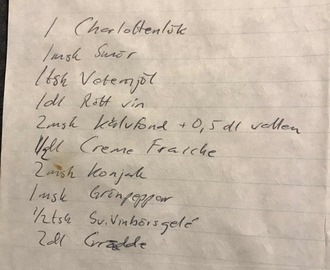 1 Charlottenlök
1 msk Smör
1 tsk Vetemjöl
1 dl Rött vin
2 msk Kalvfond + 0,5 dl vatten
1/2 dl Creme Fraiche
2 msk Konjak
1 msk Grönpeppar
1/2 tsk Sv. Vinbärsgelé
2 dl Grädde